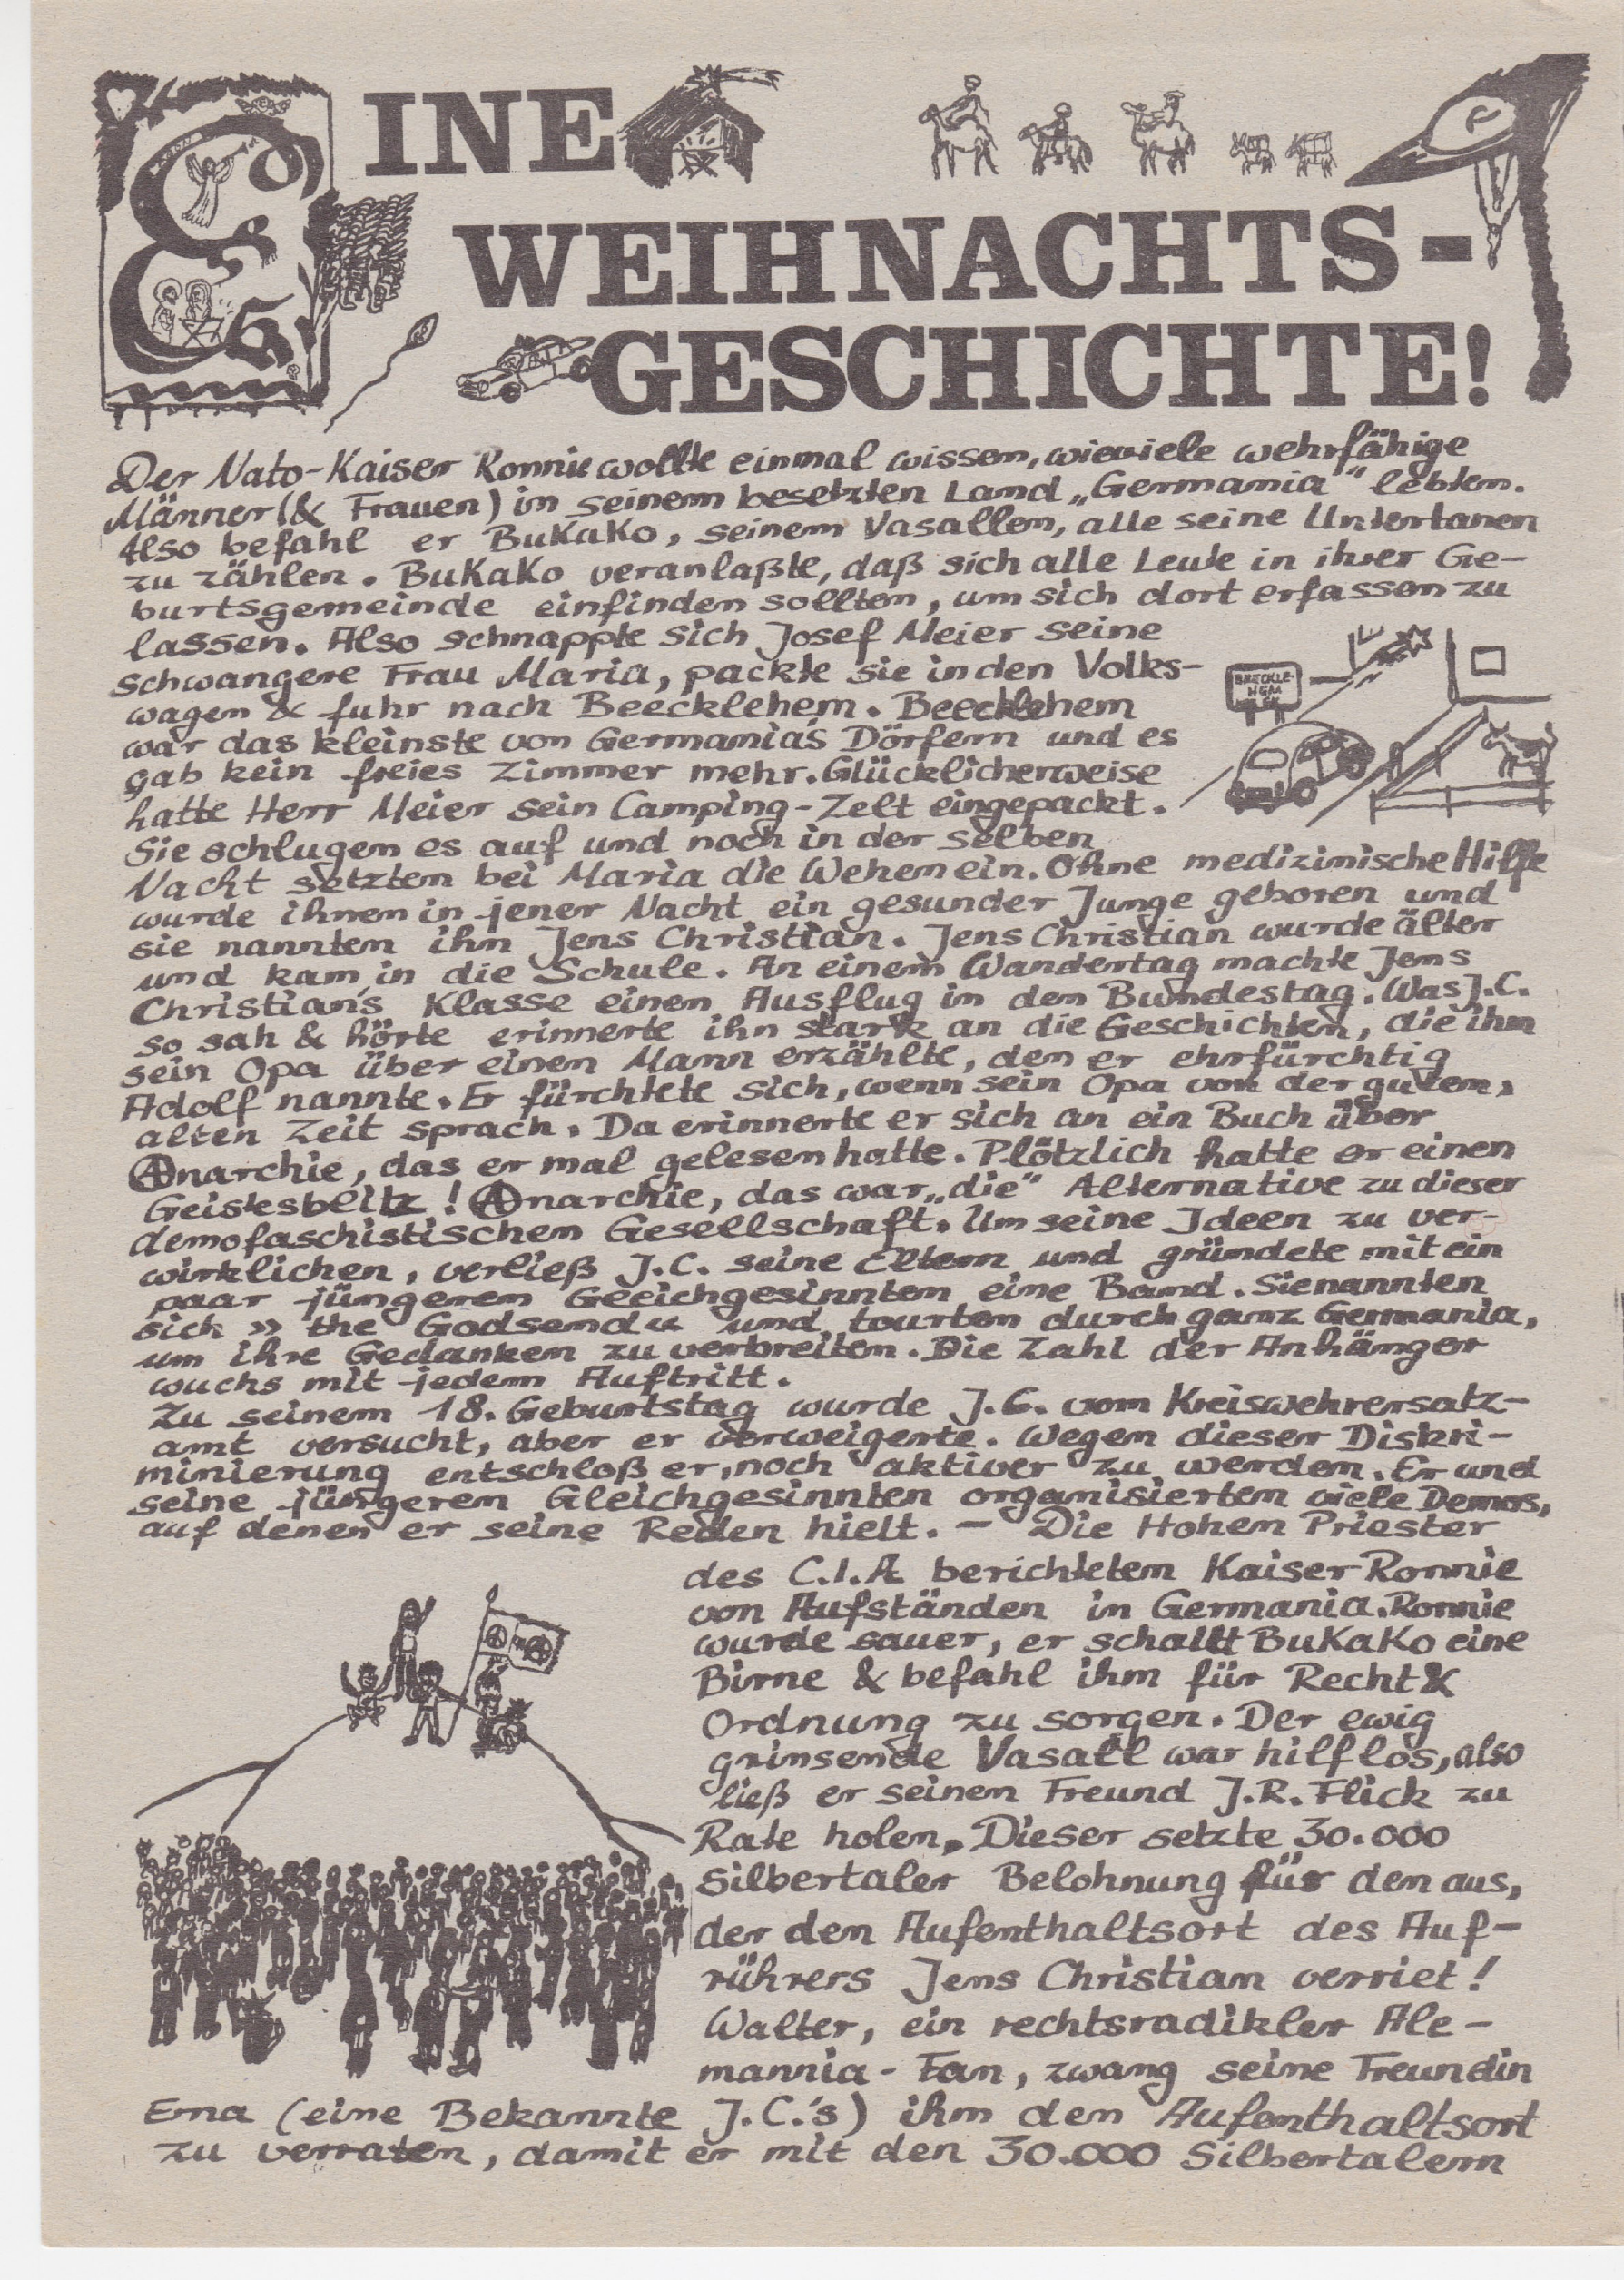 EINE
WEIHNACHTS-
GESCHICHTE!
Der Nato-Kaiser Ronnie wollte einmal wissen, wieviele wehrfähige
Männer (& Frauen) in seinem besetzten Land „Germania" lebten.
Also befahl er BuKaKo, seinem Vasallen, alle seine Untertanen
zu zählen. BuKaKo veranlaßte, daß sich alle Leute in ihrer Ge-
burtsgemeinde einfinden sollten, um sich dort erfassen zu
lassen. Also schnappte sich Josef Meier seine
schwangere Frau Maria, packte sie in den Volks-
wagen & fuhr nach Beecklehem. Beecklehem
war das kleinste von Germania's Dörfern und es
gab kein freies Zimmer mehr. Glücklicherweise
hatte Herr Meier sein Camping-Zelt eingepackt.
Sie schlugen es auf und noch in der selben
Nacht setzten bei Maria die Wehen ein. Ohne medizinische Hilfe
wurde ihnen in jener Nacht ein gesunder Junge geboren und
sie nannten ihn Jens Christian. Jens Christian wurde älter
und kam in die Schule. An einem Wandertag machte Jens
Christian's Klasse einen Ausflug in den Bundestag. Was J.C.
so sah & hörte erinnerte ihn stark an die Geschichten, die ihm
sein Opa über einen Mann erzählte, den er ehrfürchtig
Adolf nannte. Er fürchtete sich, wenn sein Opa von der guten,
alten Zeit sprach. Da erinnerte er sich an ein Buch über
Anarchie, das er mal gelesen hatte. Plötzlich hatte er einen
Geistesblitz! Anarchie, das war „die" Alternative zu dieser
demofaschistischen Gesellschaft. Um seine Ideen zu ver-
wirklichen, verließ J.C. seine Eltern und gründete mit ein
paar jüngeren Geeichgesinnten eine Band. Sie nannten
sich » the Godsend « und tourten durch ganz Germania,
um ihre Gedanken zu verbreiten. Die Zahl der Anhänger
wuchs mit jedem Auftritt.
Zu seinem 18. Geburtstag wurde J.C. vom Kreiswehrersatz-
amt versucht, aber er verweigerte. Wegen dieser Diskri-
minierung entschloß er, noch aktiver zu werden. Er und
seine jüngeren Gleichgesinnten organisierten viele Demos,
auf denen er seine Reden hielt. - Die Hohen Priester
des C.I.A berichteten Kaiser Ronnie
von Aufständen in Germania. Ronnie
wurde sauer, er schallt BuKaKo eine
Birne & befahl ihm für Recht &
Ordnung zu sorgen. Der ewig
grinsende Vasall war hilflos, also
ließ er seinen Freund J.R. Flick zu
Rate holen. Dieser setzte 30.000
Silbertaler Belohnung für den aus,
der den Aufenthaltsort des Auf-
rührers Jens Christian verriet!
Walter, ein rechtsradikler Ale-
mannia-Fan, zwang seine Freundin
Erna (eine Bekannte J.C.'s) ihm den Aufenthaltsort
zu verraten, damit er mit den 30.000 Silbertalern